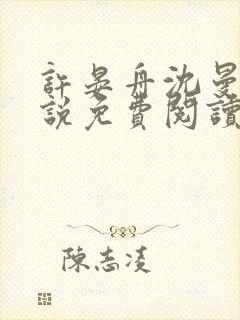 許晏舟沈曼
說免費閱讀
陳志凌